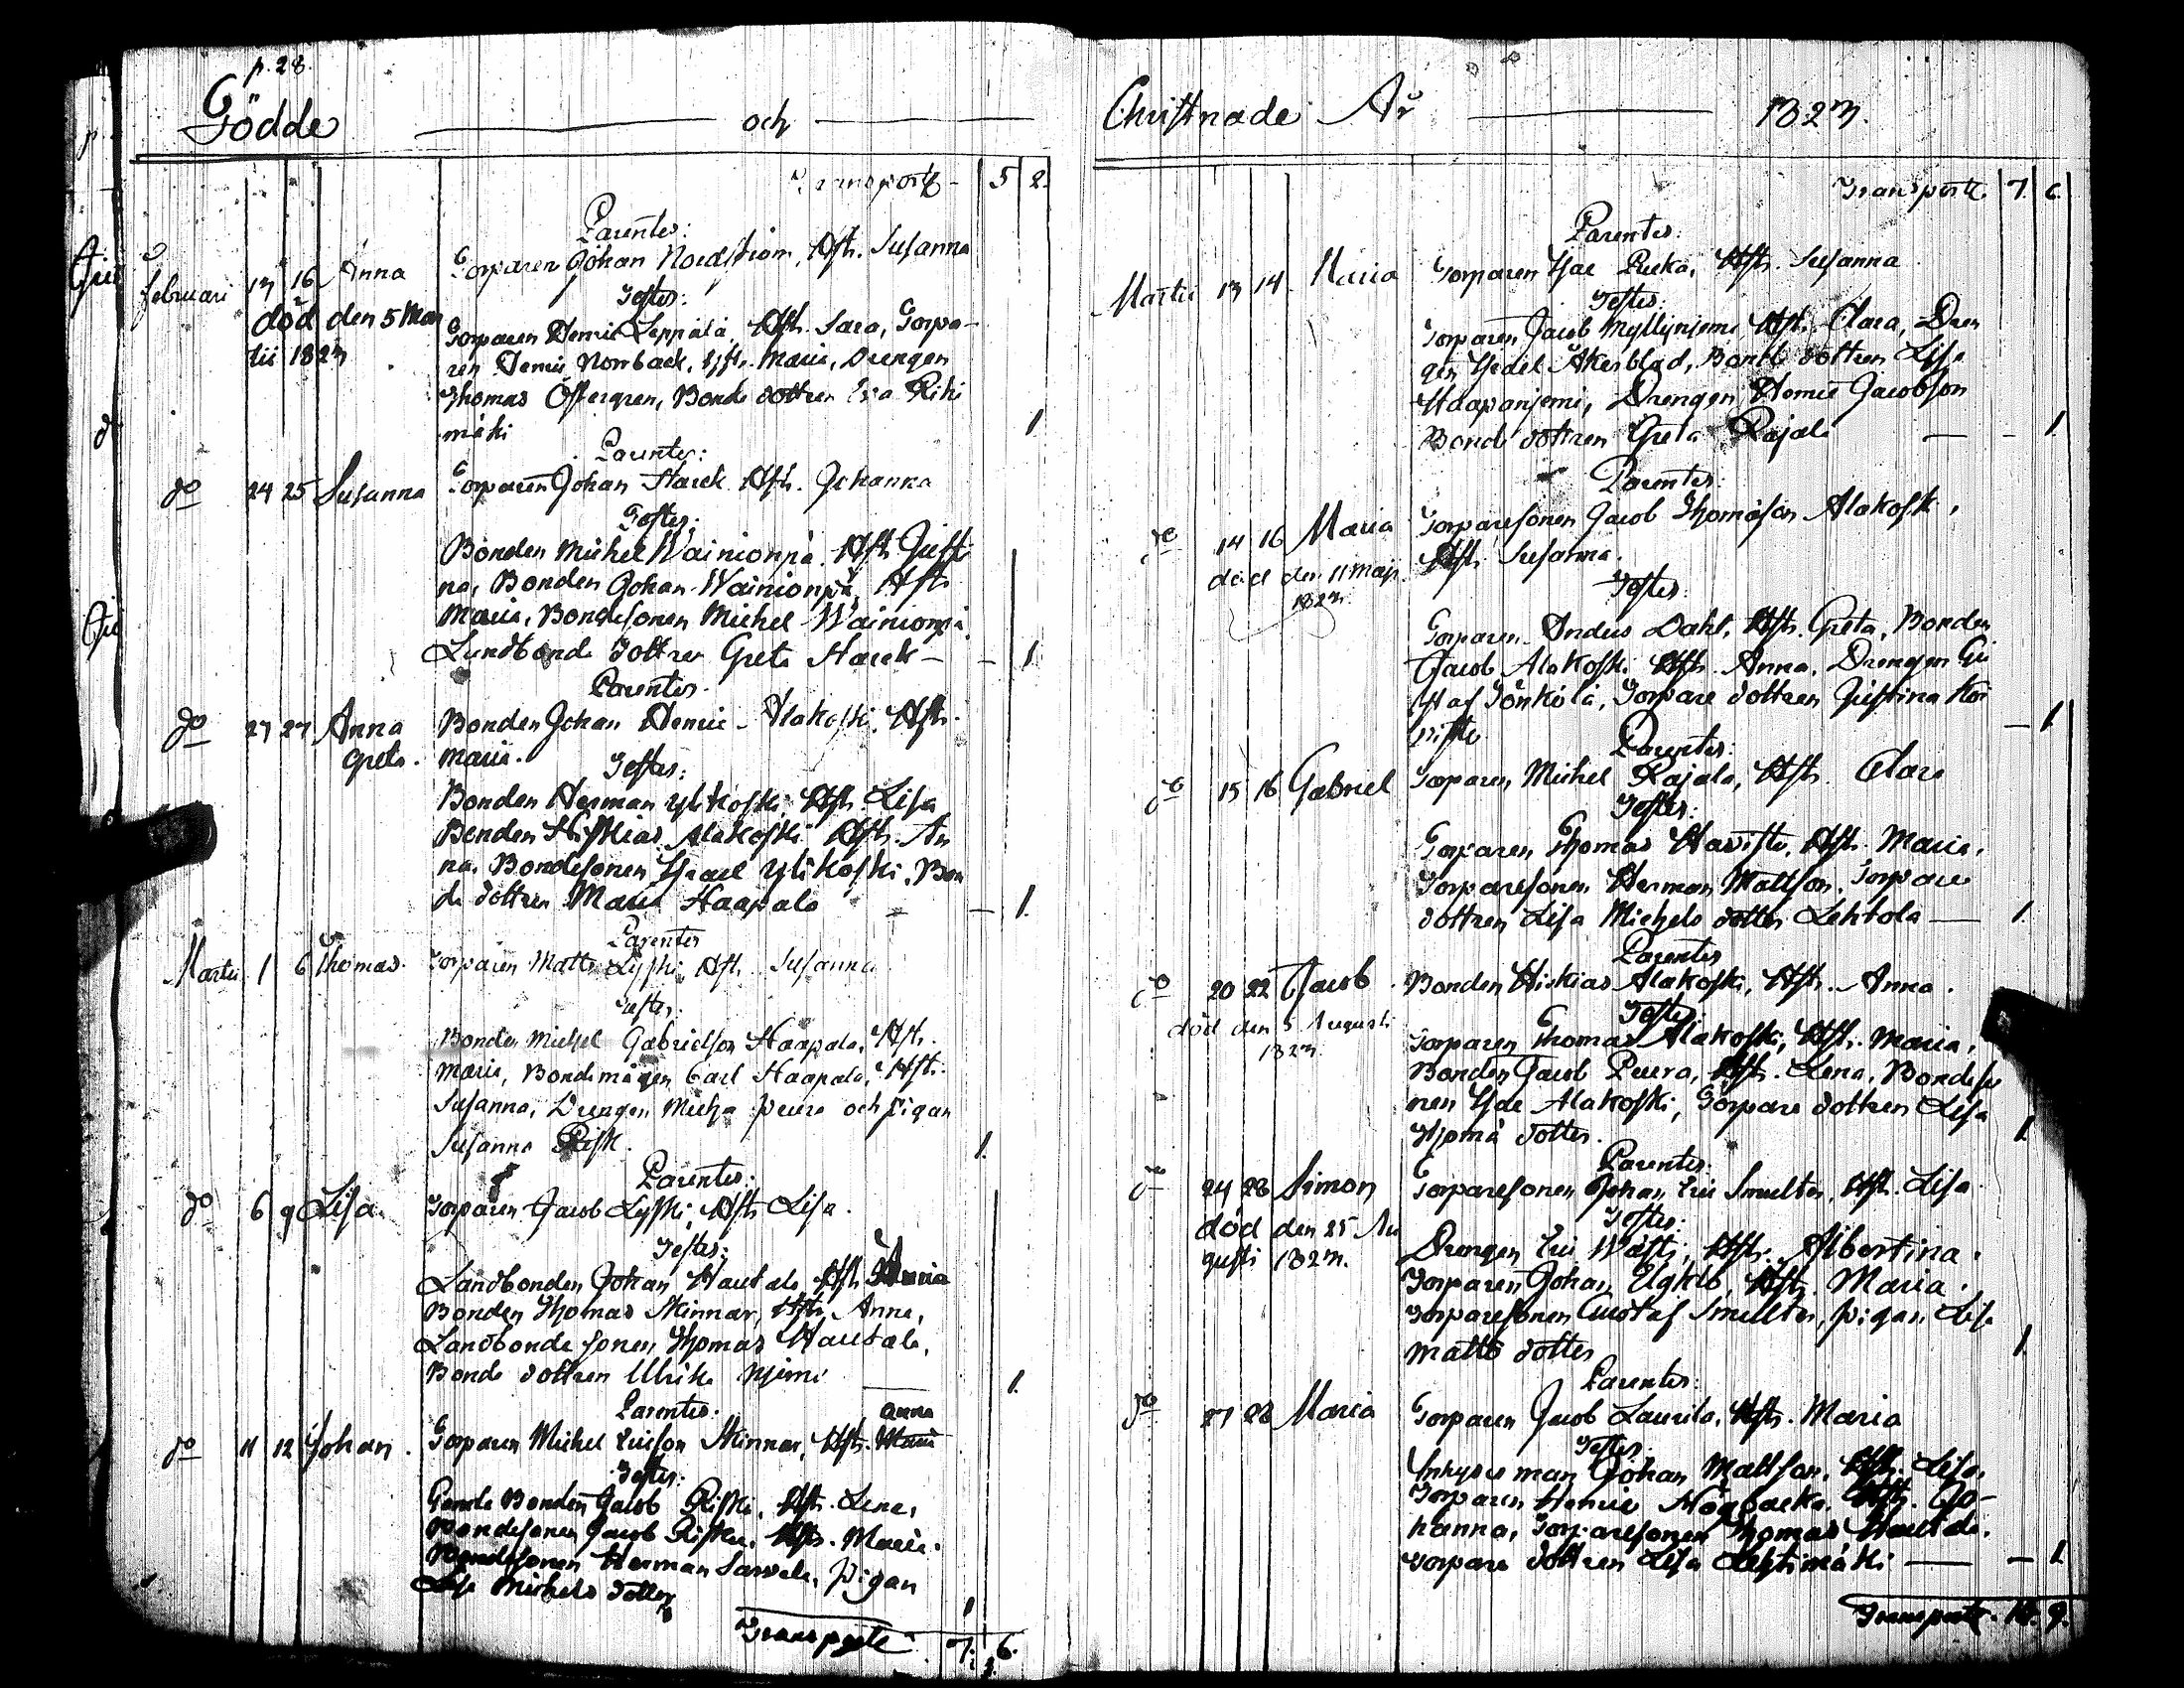 p. 28.
Födde och
Transporte 5 2.
Parentes:
Februari 17 16 Anna Torparen Johan Nordström, Hstr. Susanna
Testes:
död den 5 Mar
tii 1827
Torparen Henric Leppälä, Hstr. Sara, Torpa-
ren Henric Norrback, Hstr. Maria, Drengen
Thomas Östergren, Bonde dottren Eva Riihi
mäki 1
Parentes:
do 24 25 Susanna Torparen Johan Harck Hstr. Johanna
Testes:
Bonden Michel Wainionpä. Hstr. Justi
na, Bonden Johan Wainionpä, Hstr
Maria, Bondesonen Michel Wainionpä
Landbonde dottren Greta Harck - - 1
Parentes.
do 27 27 Anna Greta. Bonden Johan Henric Alakoski, Hstr.
Maria.
Testes:
Bonden Herman Ylikoski, Hstr. Lisa
Bonden Hiskias Alakoski Hstr. An
na, Bondesonen Israel Ylikoski, Bon
de dottren Maria Haapala - 1.
Parentes
Martii 1 6 Thomas. Torparen Matts Lyski, Hstr. Susanna
Testes:
Bonden Michel Gabrielson Haapala, Hstr.
Maria, Bondemågen Carl Haapala, Hstr.
Susanna, Drengen Micha Peura och pigan
Susanna Risk. 1.
Parentes:
do 6 9 Lisa. Torparen Jacob Lyski, Hstr Lisa.
Testes:
Landbonden Johan Hautala, Hstr Maria
Bonden Thomas Skinnar, Hstr. Anna,
Landbonde sonen Thomas Hautala,
Bonde dottren Ulrika Njemi 1.
Parentes: Anna
do 11 12 Johan. Torparen Michel Ericson Skinnar, Hstr. Maria
Testes:
Gamle Bonden Jacob Riski, Hstr. Lena,
Bondesonen Jacob Riski, Hstr. Maria.
Bondesonen Herman Sarvela, pigan
Lisa Michels dotter 1
Transporte 7. 6.
Christnade År 1827.
Transporte 7. 6.
Parentes:
Martii 13 14 Maria Torparen Isac Rucka, Hstr. Susanna
Testes:
Torparen Jacob Myllynjemi Hstr. Clara, Dren
gen Åkerblad, Bonde dottren Lisa
Haapanjemi, Drengen Henric Jacobson
Bonde dottren Greta Rajala - - 1.
Parentes:
do 14 16 Maria Torparesonen Jacob Thomason Alakoski,
Hstr. Susanna.
död den 11 Maji
1827.
Testes:
Torparen Anders Dahl, Hstr. Greta, Bonden
Jacob Alakoski Hstr. Anna, Drengen Gu
staf Jönkilä, Torpare dottren Justina Koi
visto. - 1.
Parentes:
do 15 16 Gabriel Torparen Michel Rajala, Hstr. Clara
Testes:
Torparen Thomas Havisto, Hstr. Maria,
Torparesonen Herman Mattson, Torpare
dottren Lisa Michels dotter Lehtola - 1
Parentes
do 20 22 Jacob Bonden Hiskias Alakoski, Hstr. Anna.
Testes:
död den 5 Augusti
1827.
Torparen Thomas Alakoski, Hstr. Maria,
Bonden Jacob Peura, Hstr. Lena, Bondeso
nen Isac Alakoski, Torpare dottren Lisa
dotter. 1.
Parentes:
do 24 28 Simon Torparesonen Johan Eric Smulter, Hstr. Lisa
Testes:
död den 25 Au
gusti 1827.
Drengen Eric Wästi, Hstr. Albertina.
Torparen Johan Hstr. Maria.
Torparesonen Gustaf Smulter, pigan Lisa
Matts dotter 1
Parentes:
do 27 28 Maria Torparen Jacob Laurila, Hstr. Maria
Testes:
Inhyses man Johan Mattson, Hstr. Lisa,
Torparen Henric Högbacka, Hstr. Jo-
hanna, Torparesonen Thomas Hautala.
Torpare dottren Lisa Lehtimäki - - 1.
Transporte 10. 9.